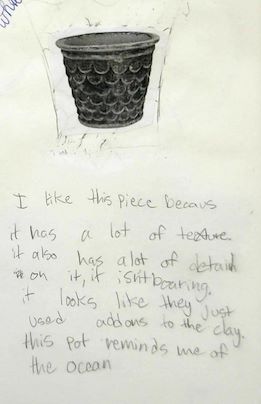 white
I like this piece becaus
it has a lot of texture.
it also has alot of detail
on it, it isnt boaring.
it looks like they just
used addons to the clay.
this pot reminds me of
the ocean